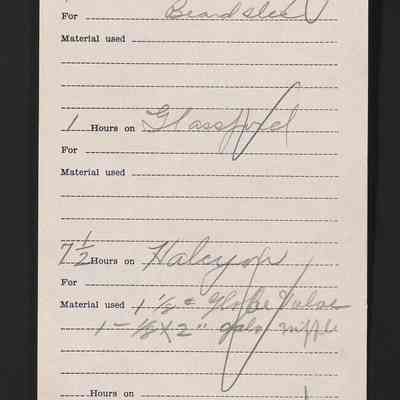 For Beardslee
Material used
1 Hours on Glassford
For
Material used
7 1/2 Hours on Halcyon
For
Material used 1 1/2 " Globe Valve
1 - 1/2 x 2" galv nipple
Hours on